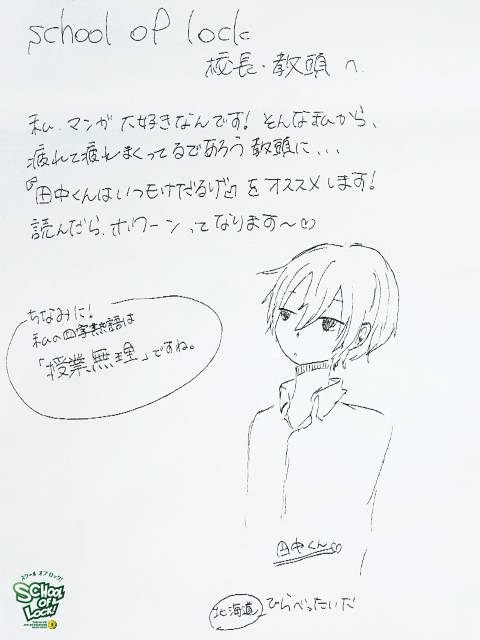 school of lock
校長・教頭 へ.
私、マンガ 大好きなんです! そんな私から、
疲れて疲れまくってるであろう教頭に、、、
『田中くんはいつもけだるげ』をオススメします!
読んだら、ホワーンってなります～♡
ちなみに!
私の四字熟語は
「授業無理」ですね。
田中くん♡
北海道 ひらべったいだ
スクール オブ ロック!
SCHOOL
OF
LOCK!